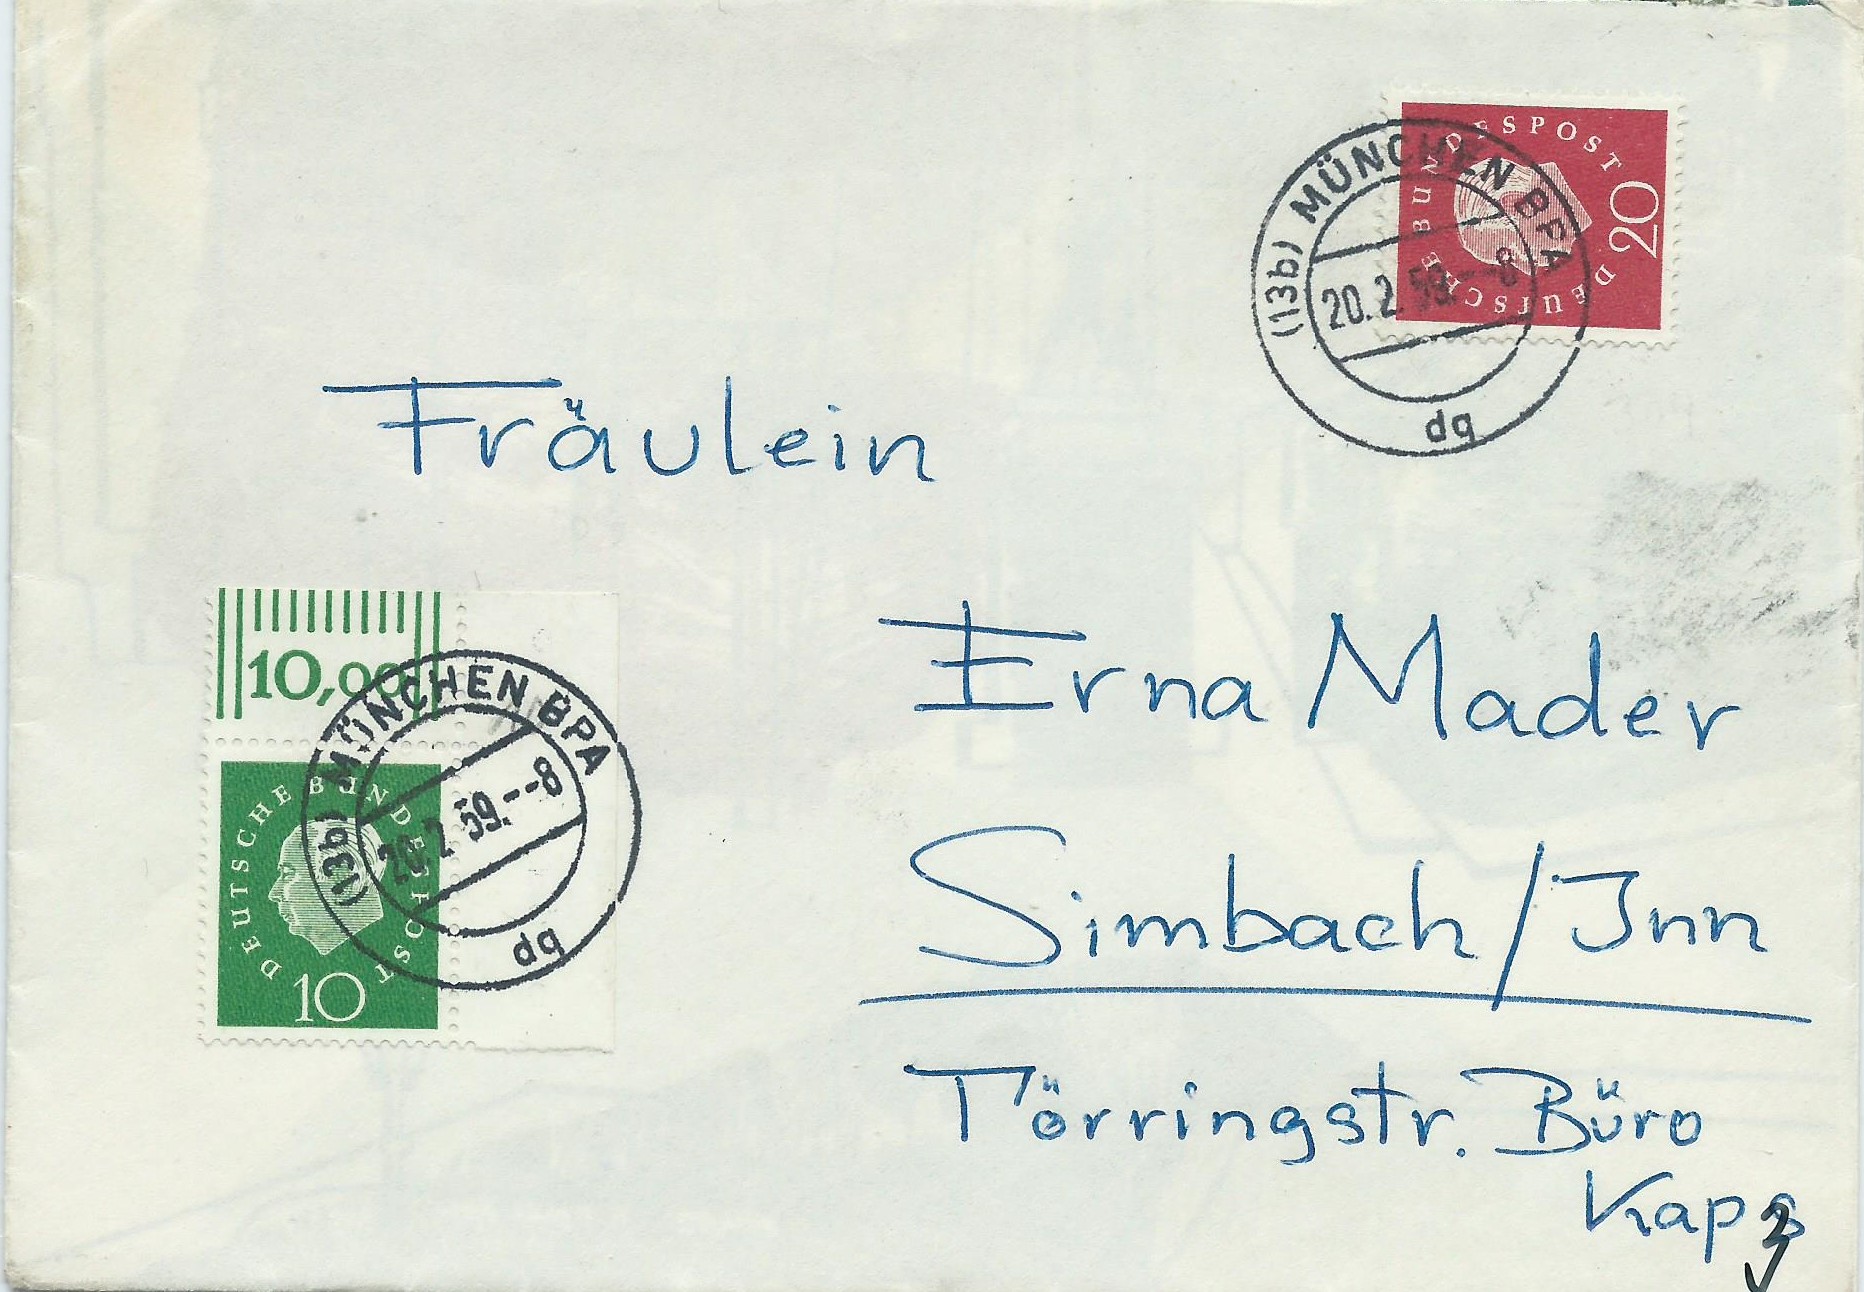 DEUTSCHE BUNDESPOST
20
(13b) MÜNCHEN BPA
20.2.59.--8
dq
Fräulein
10,00
(13b) MÜNCHEN BPA
20.2.59.--8
dq
DEUTSCHE BUNDESPOST
10
Erna Mader
Simbach/Inn
Törringstr. Büro